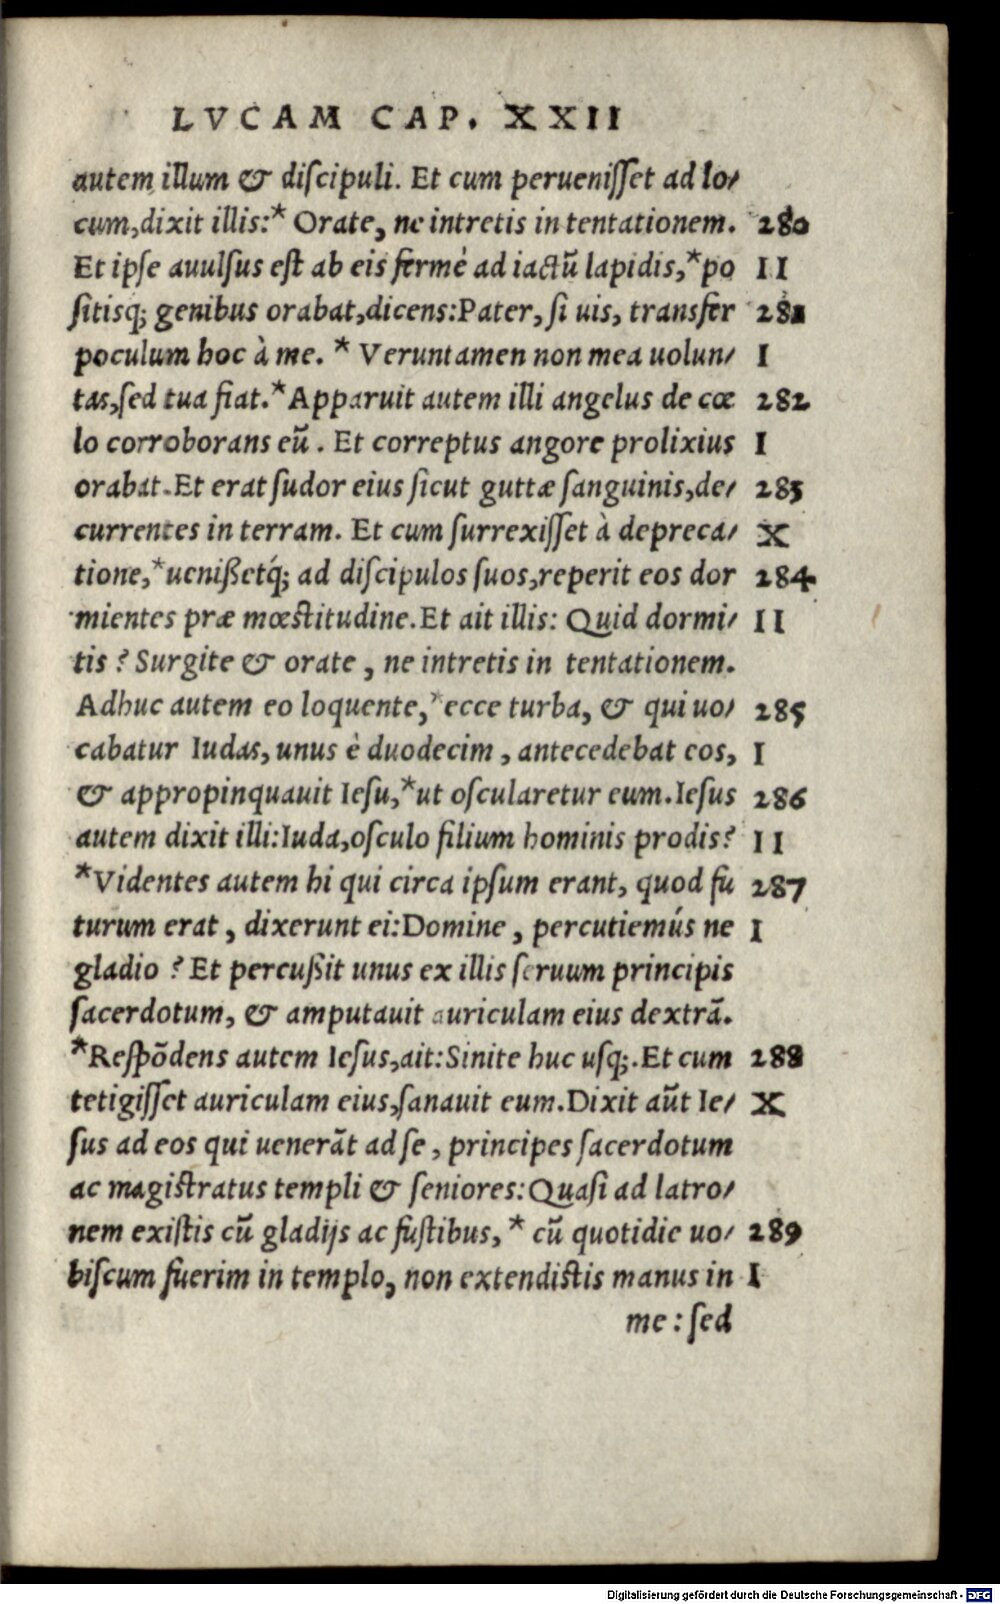 LVCAM CAP. XXII
autem illum & diſcipuli. Et cum perueniſſet ad lo/
cum,dixit illis:* Orate, ne intretis in tentationem. 280
Et ipſe auulſus eſt ab eis fermè ad iactū lapidis,*po II
ſitisq; genibus orabat,dicens:Pater, ſi uis, transfer 281
poculum hoc à me. * Veruntamen non mea uolun/ I
tas,ſed tua fiat.*Apparuit autem illi angelus de cœ 282
lo corroborans eū . Et correptus angore prolixius I
orabat.Et erat ſudor eius ſicut guttæ ſanguinis,de/ 283
currentes in terram. Et cum ſurrexiſſet à depreca/ X
tione,*uenißetq́; ad diſcipulos ſuos,reperit eos dor 284
mientes præ mœſtitudine.Et ait illis: Quid dormi/ II
tis ? Surgite & orate , ne intretis in tentationem.
Adhuc autem eo loquente,*ecce turba, & qui uo/ 285
cabatur Iudas, unus è duodecim , antecedebat eos, I
& appropinquauit Ieſu,*ut oſcularetur eum.Ieſus 286
autem dixit illi:Iuda,oſculo filium hominis prodis? II
*Videntes autem hi qui circa ipſum erant, quod fu 287
turum erat , dixerunt ei:Domine , percutiemús ne I
gladio ? Et percußit unus ex illis ſeruum principis
ſacerdotum, & amputauit auriculam eius dextrā.
*Reſpōdens autem Ieſus,ait:Sinite huc uſq;.Et cum 288
tetigiſſet auriculam eius,ſanauit eum.Dixit aūt Ie/ X
ſus ad eos qui uenerāt ad ſe , principes ſacerdotum
ac magiſtratus templi & ſeniores:Quaſi ad latro/
nem existis cū gladijs ac fuſtibus, * cū quotidie uo/ 289
biſcum fuerim in templo, non extendiſtis manus in I
me : ſed
Digitalisierung gefördert durch die Deutsche Forschungsgemeinschaft - DFG